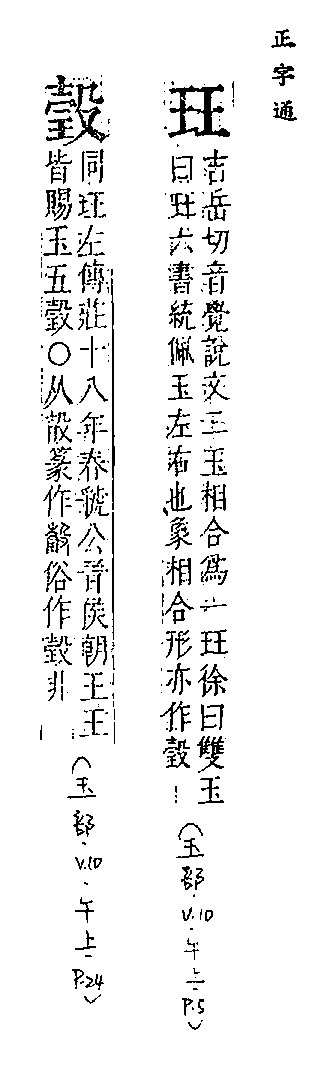 正字通
玨
吉岳切音覺說文二玉相合爲一玨徐曰雙玉
曰玨六書統佩玉左右也象相合形亦作瑴
(玉部·V.10·午上·P.5)
瑴
同玨左傳莊十八年春虢公晉侯朝王王
皆賜玉五瑴○从㱿篆作瑴俗作瑴非
(玉部·V.10·午上·P.24)